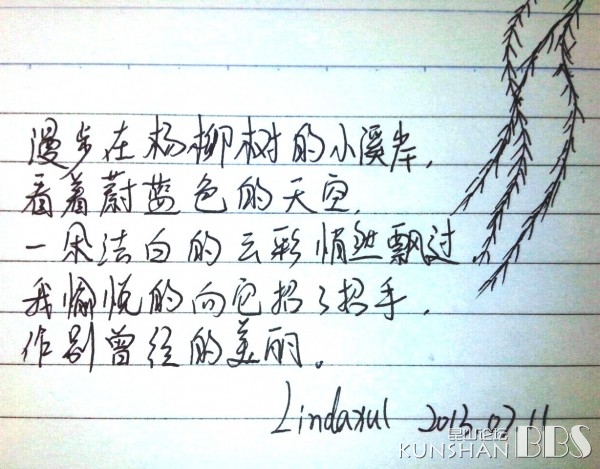 漫步在杨柳树的小溪岸,
看着蔚蓝色的天空,
一朵洁白的云彩悄然飘过,
我愉悦的向它招了招手,
作别曾经的美丽。
Lindaxul 2013.07.11
昆山论坛
KUNSHAN BBS